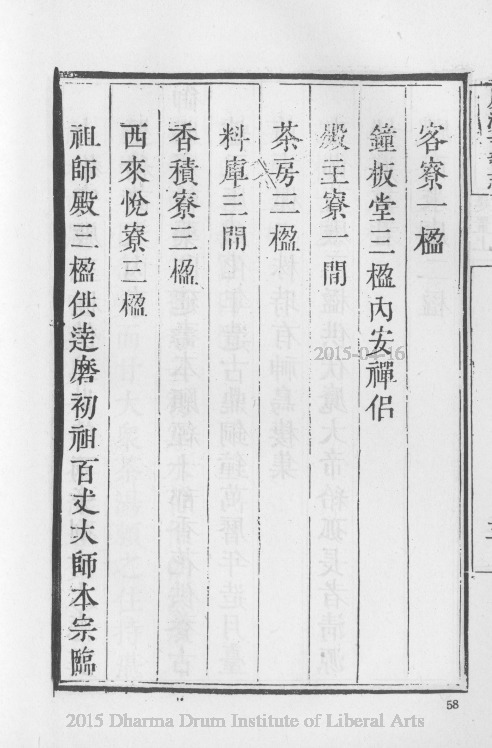 客寮一楹
鐘板堂三楹內安禪侶
殿主寮 間
茶房三楹
料庫三間
香積寮三楹
西來悅寮三楹
祖師殿三楹供達磨初祖百丈大師本宗臨
58
2015-04-16
2015 Dharma Drum Institute of Liberal Arts